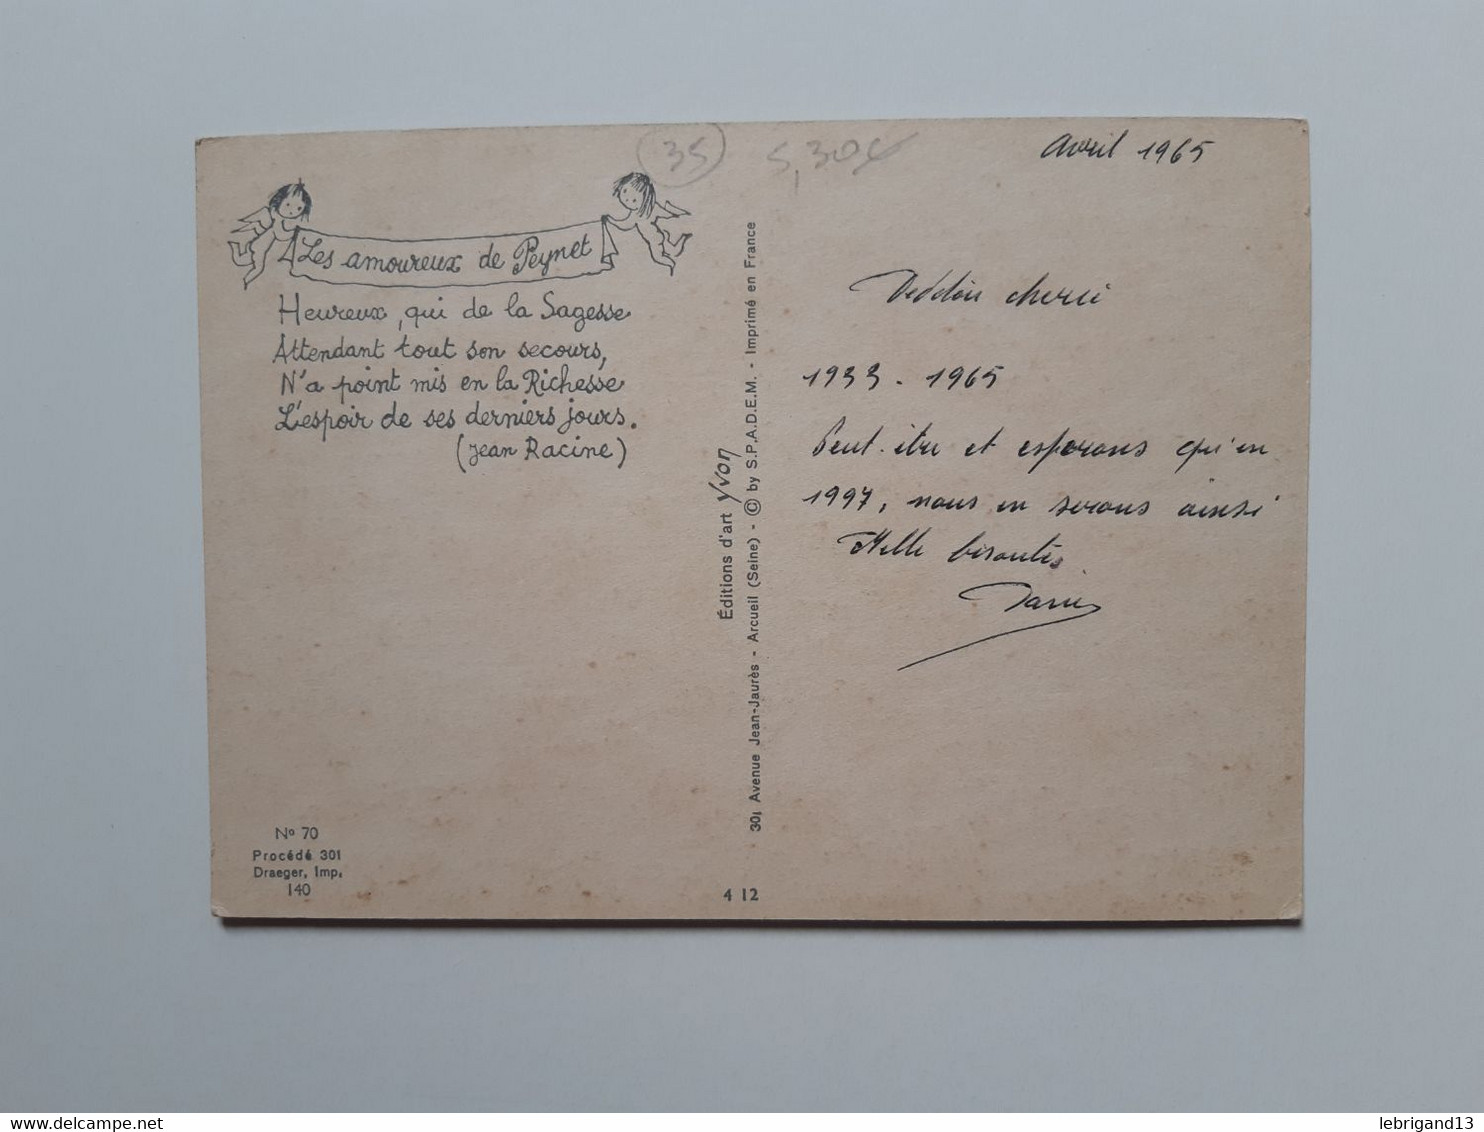 35
5,30€
Avril 1965
Les amoureux de Peynet
Heureux, qui de la Sagesse
Attendant tout son secours,
N'a point mis en la Richesse
L'espoir de ses derniers jours.
(Jean Racine)
N° 70
Procédé 301
Draeger, Imp.
140
Éditions d'art Yvon
30, Avenue Jean-Jaurès - Arcueil (Seine) - © by S.P.A.D.E.M. - Imprimé en France
4 12
cherie
1933 - 1965
Peut-être et esperons qu'en
1997, nous en serons ainsi
Mille
lebrigand13